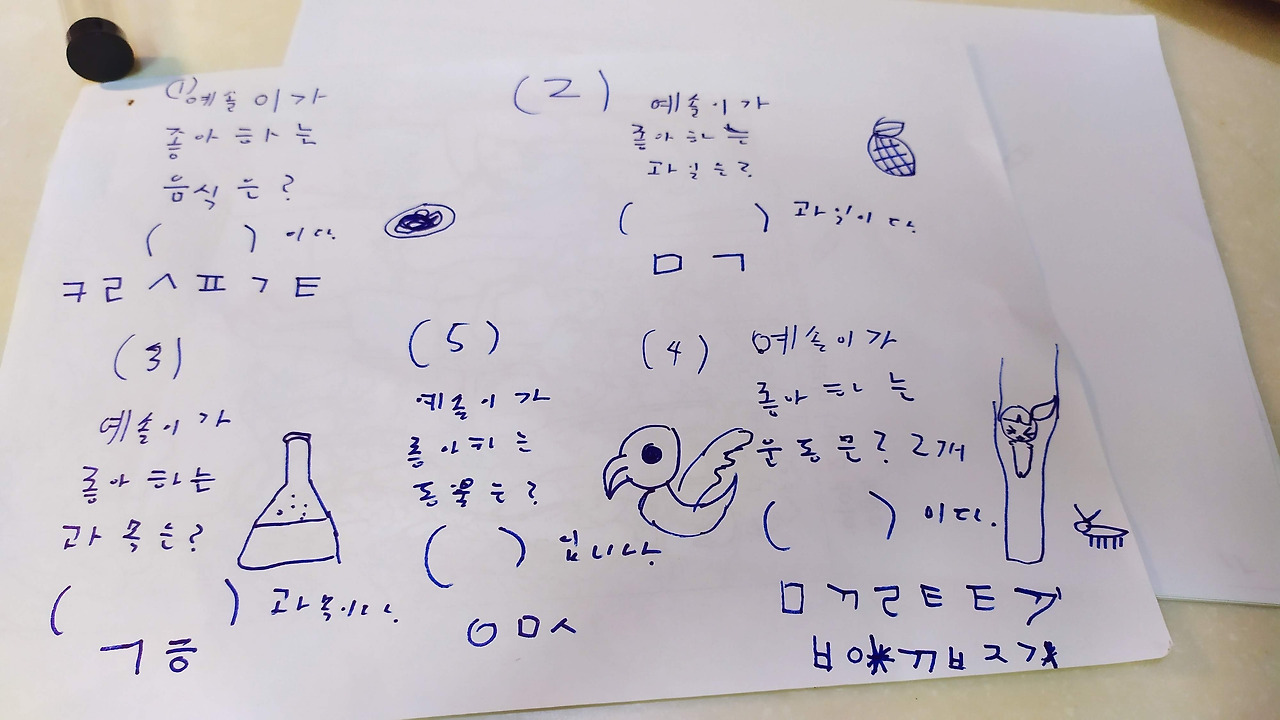 (1) 예솔이가
좋아 하는
음식은?
( ) 이다.
ㅋㄹㅅㅍㄱㅌ
(2) 예솔이가
좋아하는
과일은?
( ) 과일이다.
ㅁㄱ
(3)
예솔이가
좋아하는
과목은?
( ) 과목이다.
ㄱㅎ
(5)
예솔이가
좋아하는
동물은?
( ) 입니다.
ㅇㅁㅅ
(4) 예솔이가
좋아하는
운동문? 2개
( ) 이다.
ㅁㄲㄹㅌㅌ
ㅂㅇ ㄲㅂㅈㄱ